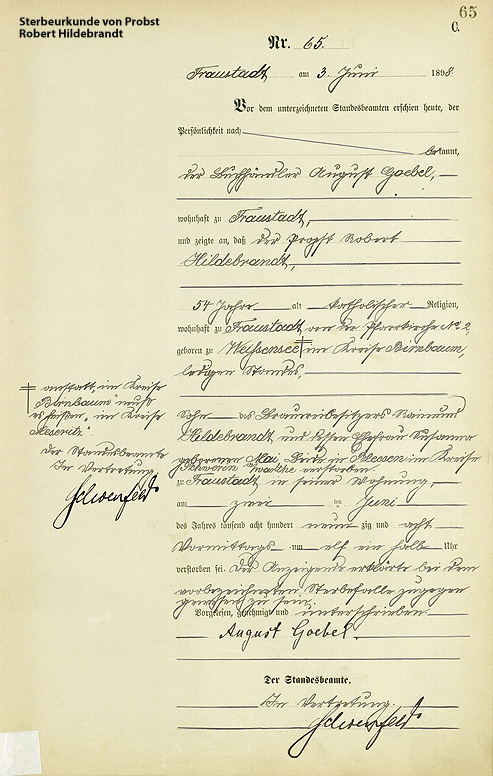 Sterbeurkunde von Probst
Robert Hildebrandt
65
C.
Nr. 65.
Fraustadt am 3. Juni 1898.
Vor dem unterzeichneten Standesbeamten erschien heute, der
Persönlichkeit nach
bekannt,
der Buchhändler August Goebel,
wohnhaft zu Fraustadt,
und zeigte an, daß der Propst Robert
Hildebrandt,
54 Jahre alt katholischer Religion,
wohnhaft zu Fraustadt, an der Pfarrkirche No 2,
geboren zu Weissensee im Kreise Birnbaum,
ledigen Standes,
Sohn des Brauereibesitzers Raimund
Hildebrandt und dessen Ehefrau Susanna
geborenen Mai, Beide in Bleesen im Kreise
Schwerin Warthe verstorben.
zu Fraustadt in seiner Wohnung,
am zwei ten Juni
des Jahres tausend acht hundert neun zig und acht
Vormittags um elf ein halb Uhr
verstorben sei. Der Anzeigende erklärte bei dem
vorbezeichneten Sterbefalle zugegen
gewesen zu sein.
Vorgelesen, genehmigt und unterschrieben
August Goebel.
Der Standesbeamte.
In Vertretung.
Schoenfeld
anstatt „im Kreise
Birnbaum" muß
es heißen „im Kreise
Meseritz".
Der Standesbeamte
In Vertretung
Schoenfeld